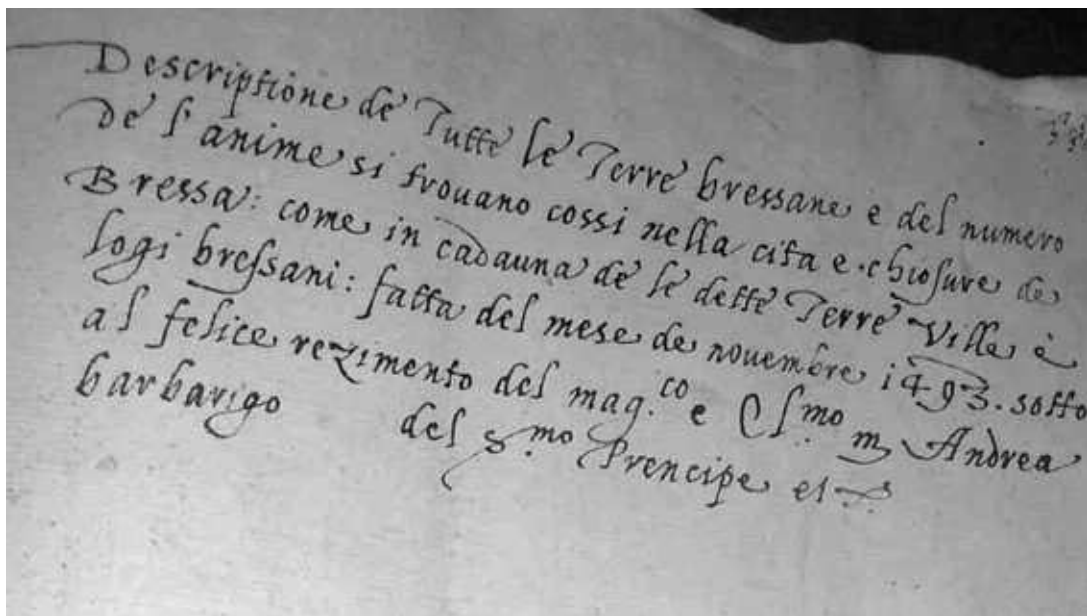 Descriptione de Tutte le Terre bressane e del numero
de l'anime si trouano cossi nella cita e chiosure de
Bressa: come in cadauna de le dette Terre Ville e
logi bressani: fatta del mese de nouembre 1493. sotto
al felice rezimento del mag.co e Cl.mo m Andrea
barbarigo del s.mo Prencipe